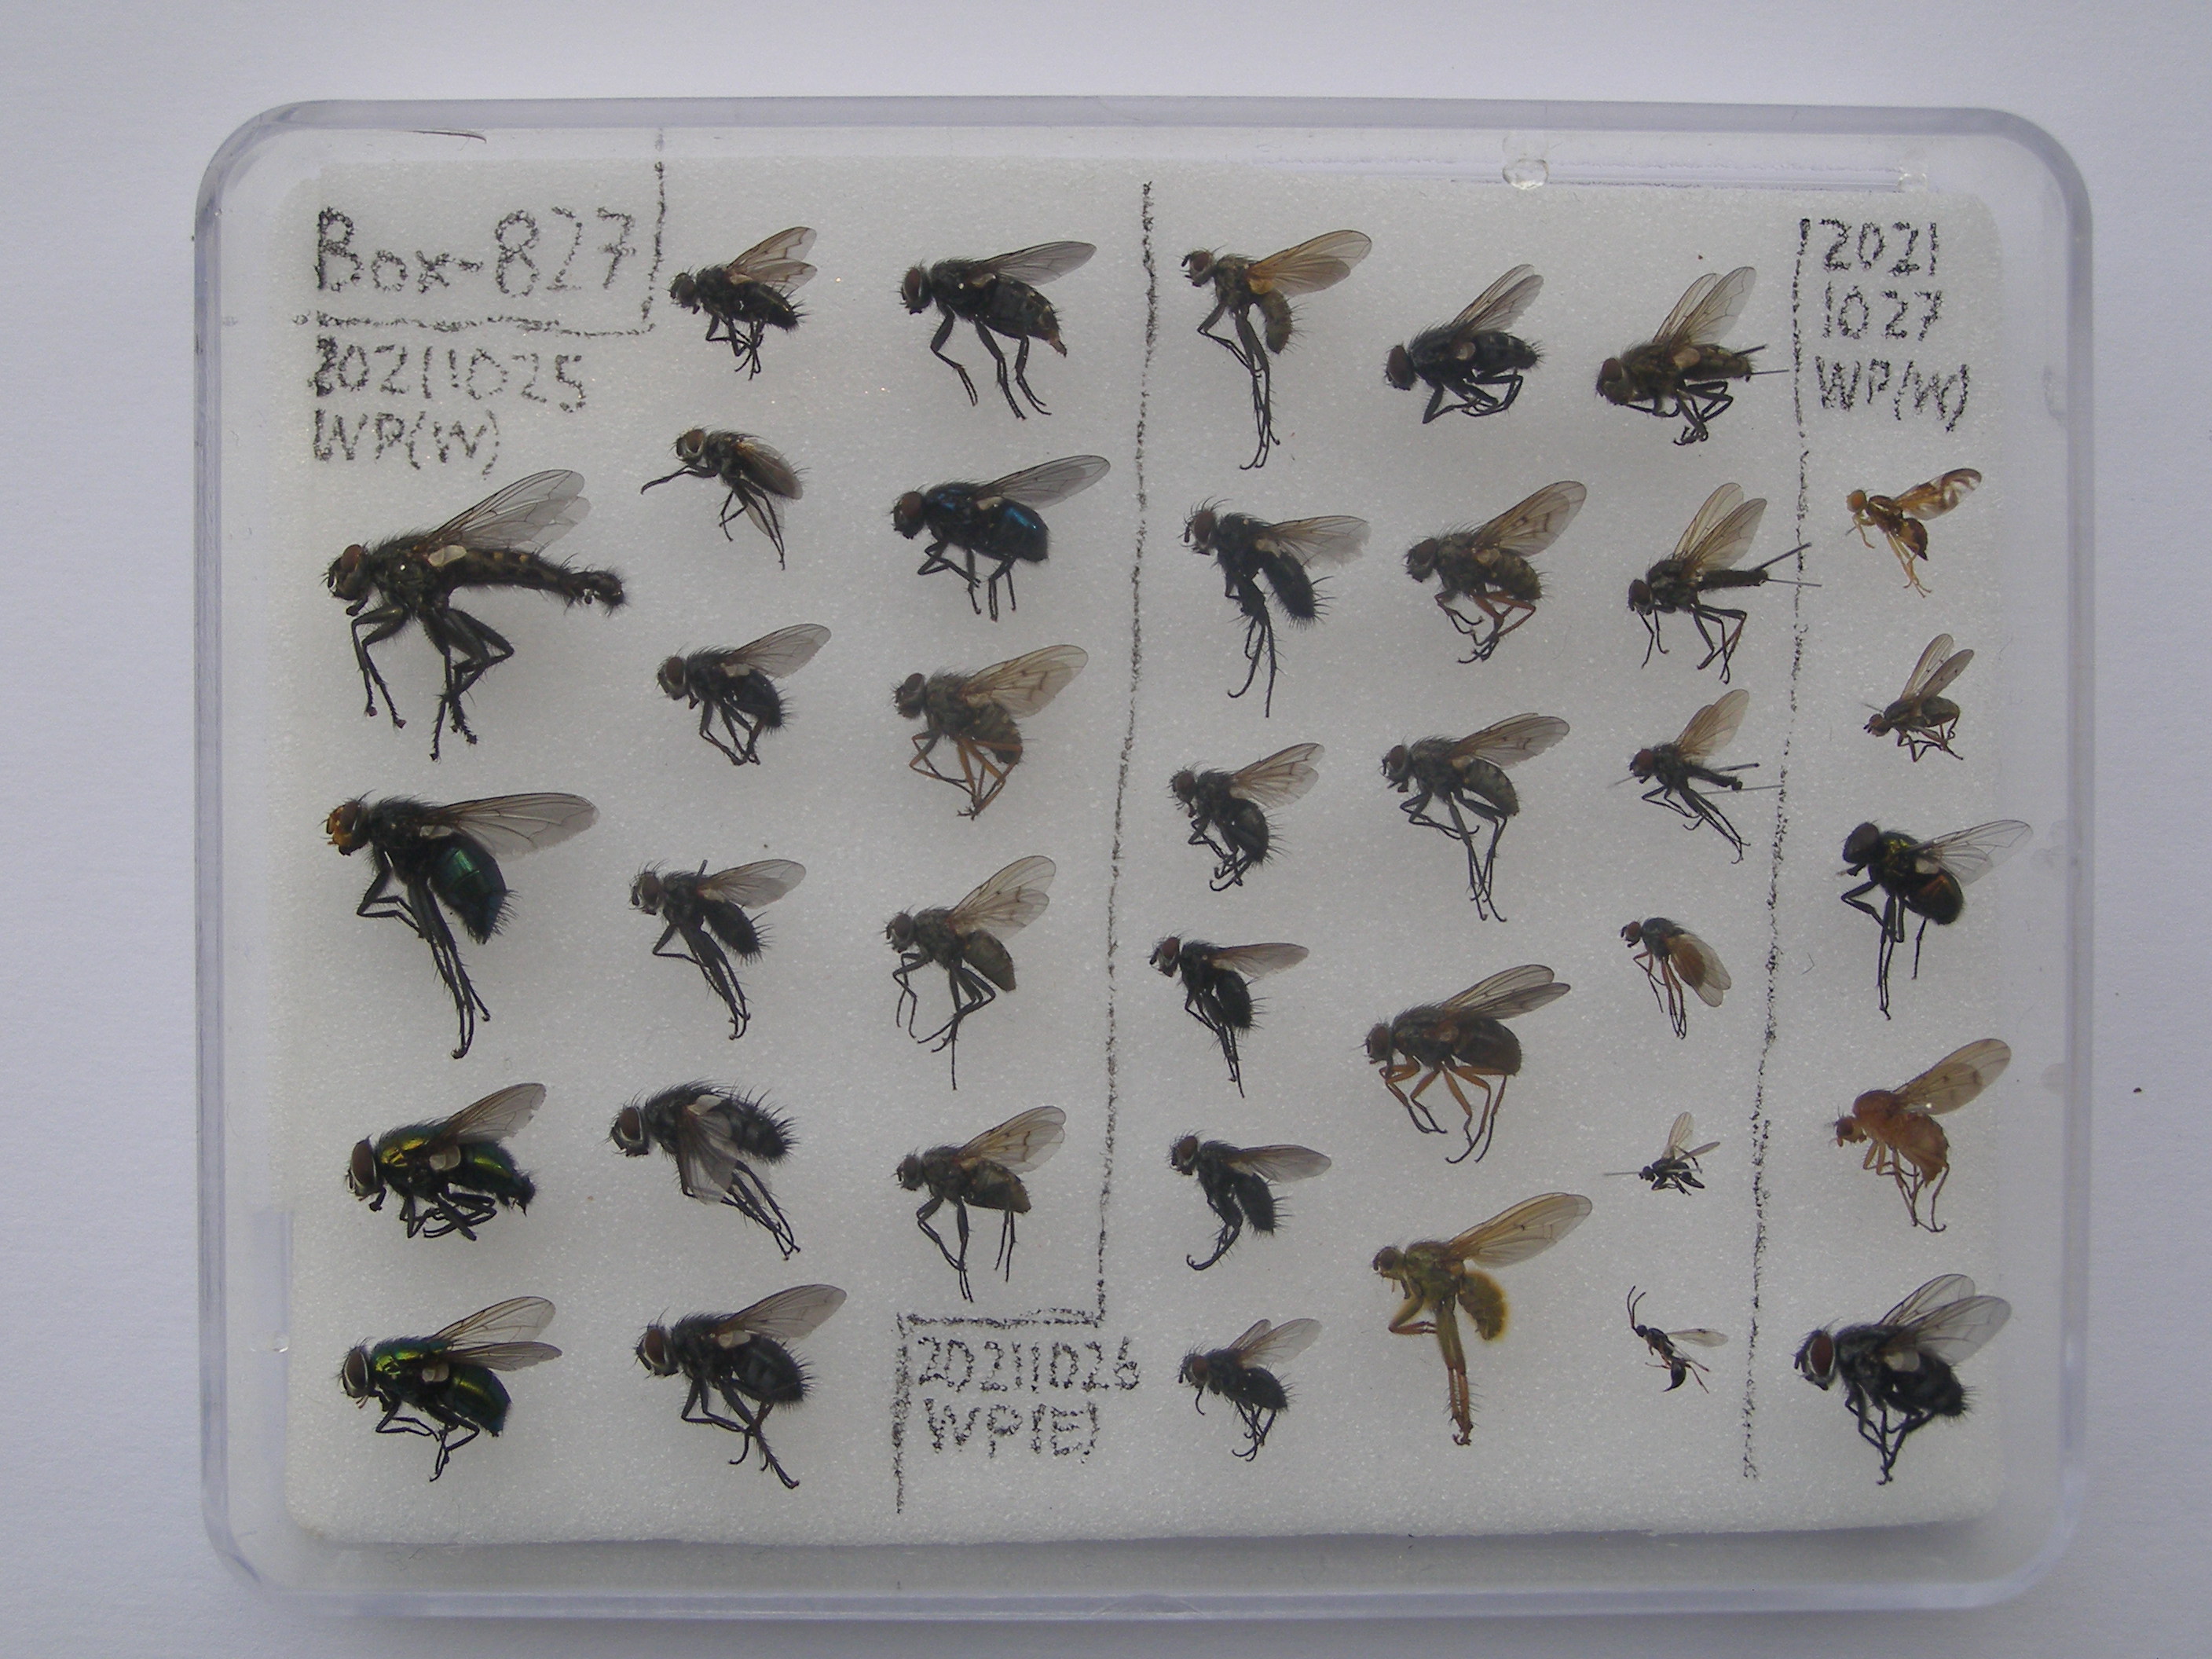 Box-827
20211025
WP(W)
20211026
WP(E)
2021
1027
WP(W)